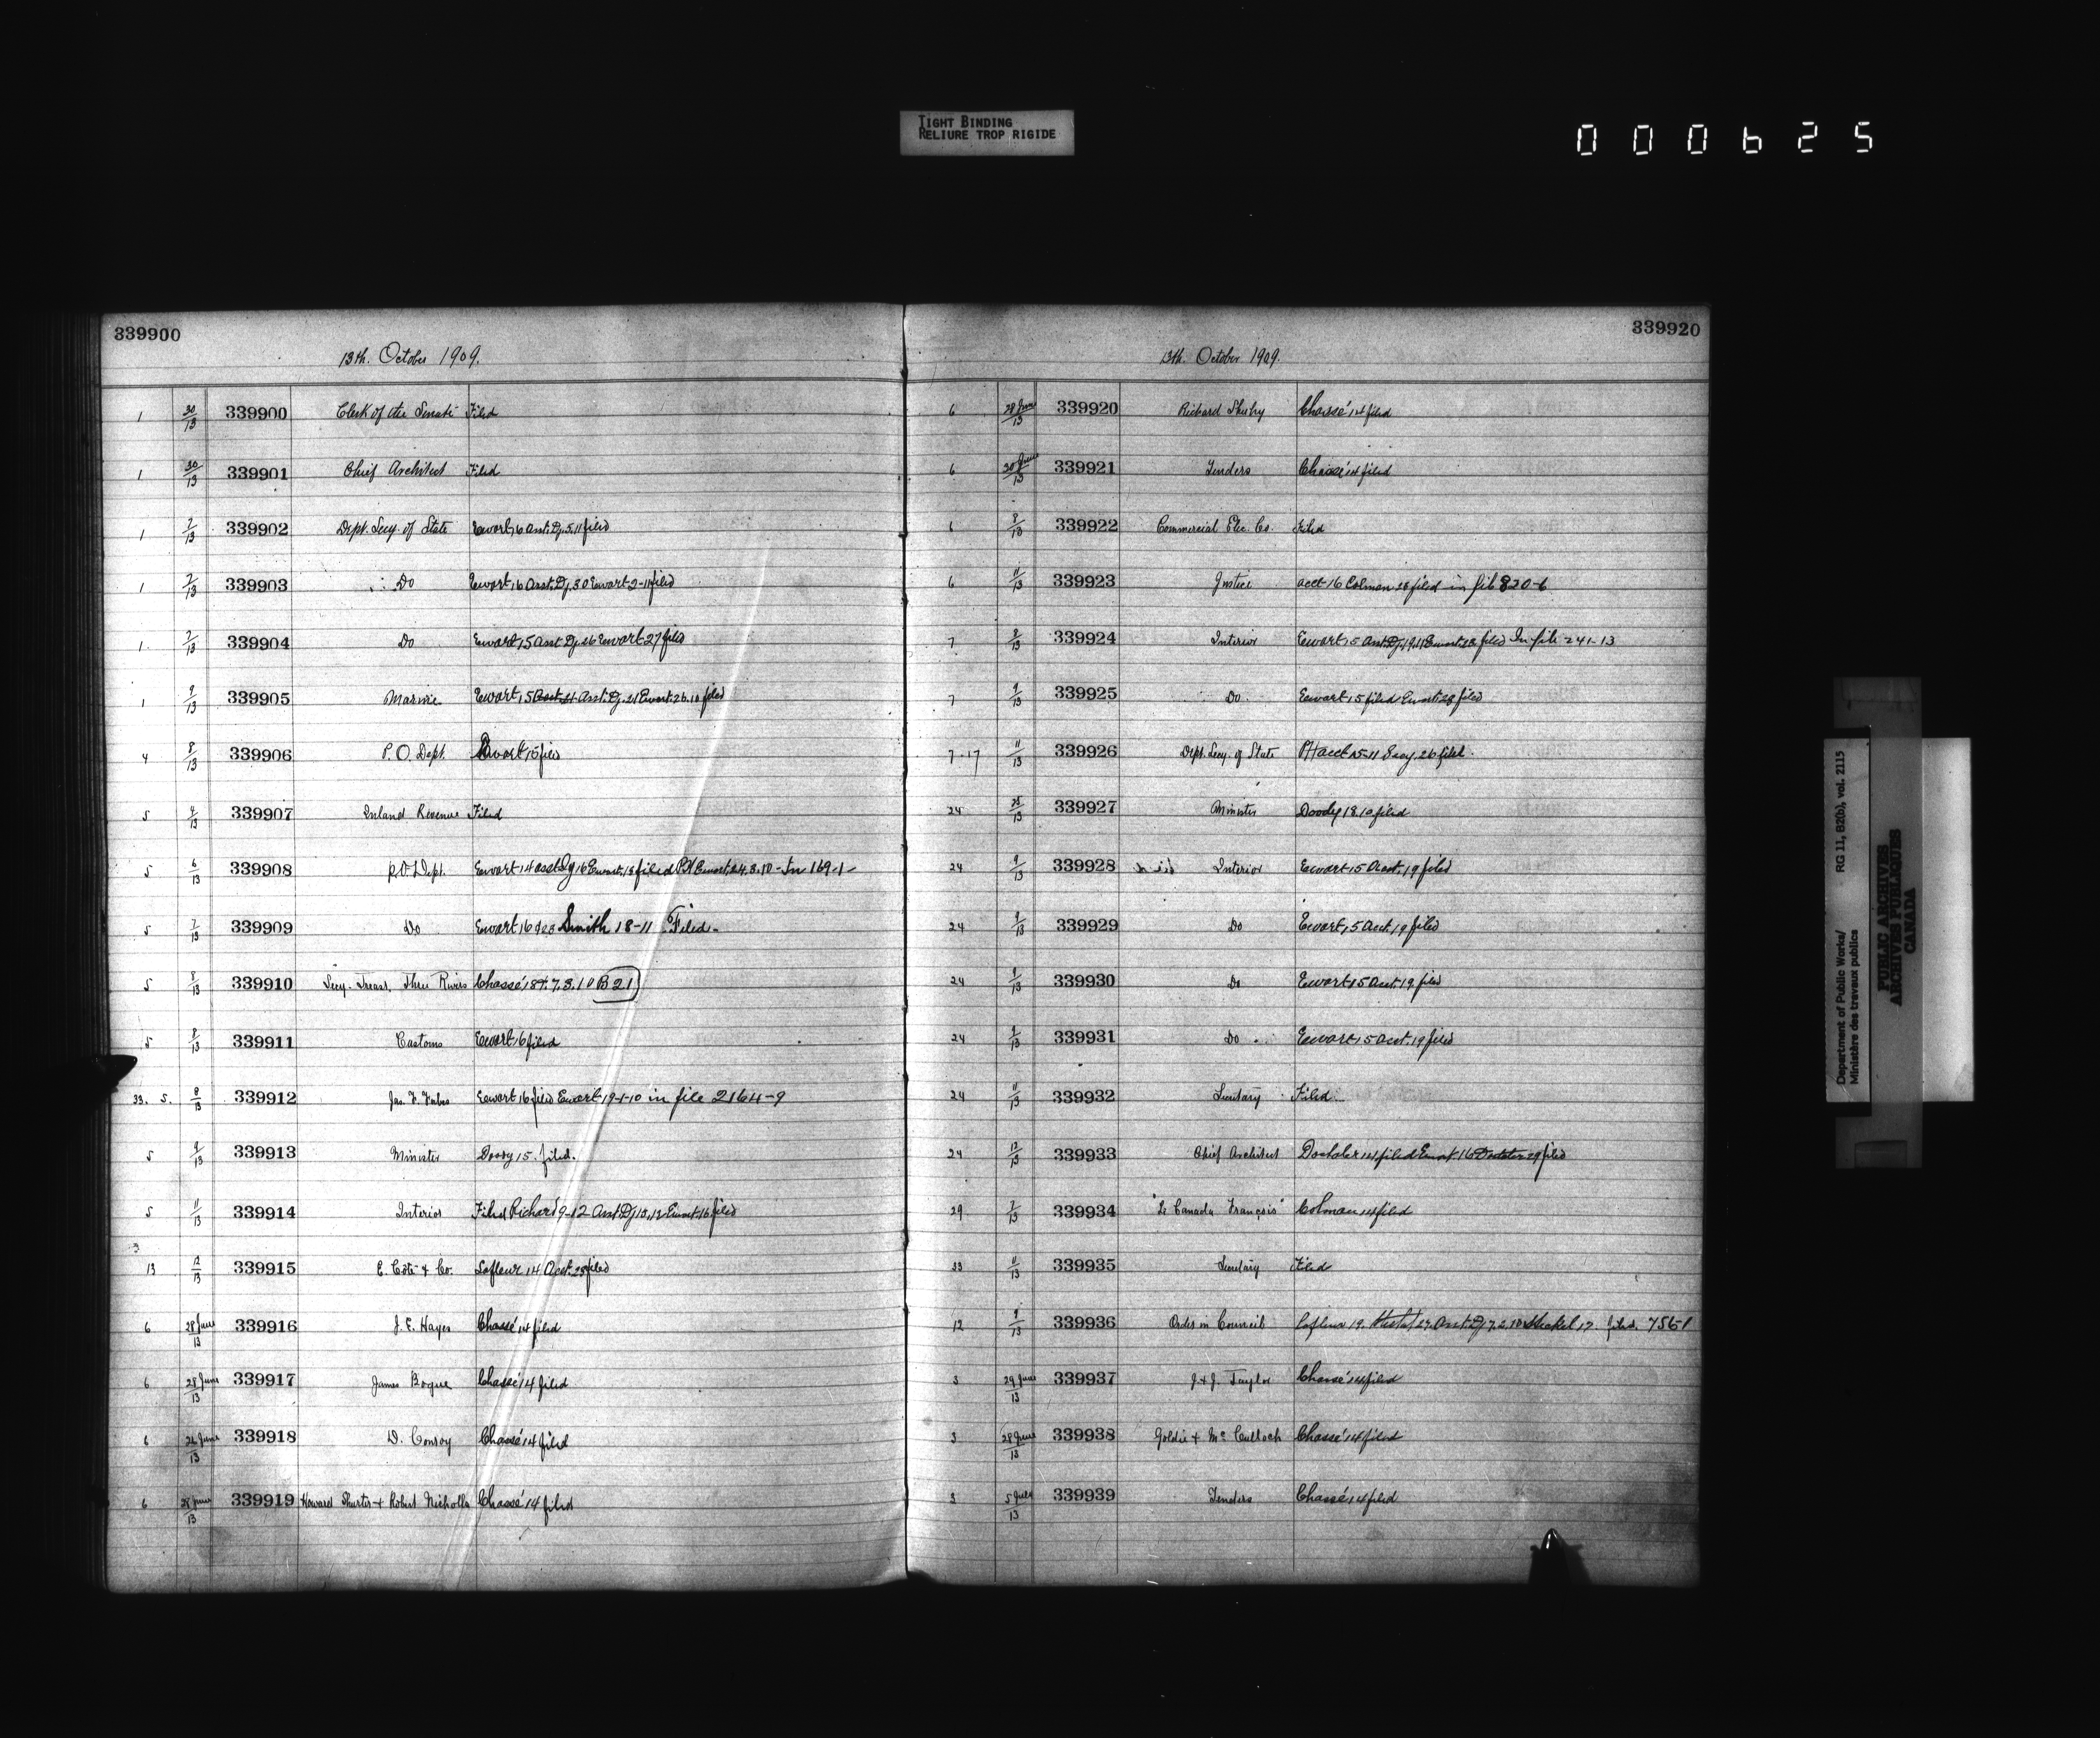 TIGHT BINDING
RELIURE TROP RIGIDE
000625
339900
13th. October 1909.
1 30/13 339900 Clerk of the Senate Filed
1 30/13 339901 Chief Architect Filed
1 7/13 339902 Dept. Secy. of State Ewart 16 Asst. Dj. 5.11 filed
1 7/13 339903 Do Ewart 16 Asst. Dj. 30 Ewart 2-11 filed
1 7/13 339904 Do Ewart 15 Asst Dj. 26 Ewart 27 filed
1 9/13 339905 Marine Ewart 15 Acct 21 Asst. Dj. 21 Ewart 26.10 filed
4 8/13 339906 P.O. Dept. Ewart 15 filed
5 4/13 339907 Inland Revenue Filed
5 6/13 339908 P.O. Dept. Ewart 14 asst Dj 16 Ewart 18 filed Ewart 24.3.10 - In 169-1-
5 7/13 339909 Do Ewart 16 Smith 18-11 Filed.
5 8/13 339910 Secy. Treas. Three Rivers Chassé 18 7.3.10 B21
5 8/13 339911 Customs Ewart 16 filed
33. 5. 8/13 339912 Jas. F. Forbes Ewart 16 filed Ewart 19-1-10 in file 2164-9
5 9/13 339913 Minister Doody 15. filed.
5 11/13 339914 Interior Filed Richard 9-12 Asst Dj 15.12 Ewart 16 filed
3
13 12/13 339915 E. Coté & Co. Lafleur 14 Acct. 25 filed
6 28 June/13 339916 J. E. Hayes Chassé 14 filed
6 28 June/13 339917 James Bogue Chassé 14 filed
6 26 June/13 339918 D. Conroy Chassé 14 filed
6 28 June/13 339919 Howard Shurter & Robert Nicholls Chassé 14 filed
339920
13th. October 1909.
6 28 June/13 339920 Richard Chassé 14 filed
6 30 June/13 339921 Tenders Chassé 14 filed
6 8/13 339922 Commercial Elec. Co. Filed
6 11/13 339923 Justice acct 16 Colman 28 filed in file 820-6
7 8/13 339924 Interior Ewart 15 Asst Dj. 19.11 Ewart 22 filed In file 241-13
7 9/13 339925 Do Ewart 15 filed Ewart 28 filed
7-17 11/13 339926 Dept. Secy. of State acct 15-11 Secy. 26 filed.
24 25/13 339927 Minister Doody 18.10 filed
24 9/13 339928 Interior Ewart 15 Acct. 19 filed
24 9/13 339929 Do Ewart 15 Acct. 19 filed
24 9/13 339930 Do Ewart 15 Acct. 19 filed
24 9/13 339931 Do Ewart 15 Acct. 19 filed
24 11/13 339932 Secretary Filed
24 12/13 339933 Chief Architect 14 filed Ewart 16 29 filed
29 7/13 339934 "Le Canada Français" Colman 14 filed
33 11/13 339935 Secretary Filed
12 9/13 339936 Order in Council Lafleur 19. 27. Asst. Dj 7.2.10 17. filed. 756-1
3 29 June/13 339937 J. & J. Taylor Chassé 14 filed
3 28 June/13 339938 Goldie & McCulloch Chassé 14 filed
3 5 July/13 339939 Tenders Chassé 14 filed
Department of Public Works/ RG 11, B2(b), vol. 2115
Ministère des travaux publics
PUBLIC ARCHIVES
ARCHIVES PUBLIQUES
CANADA